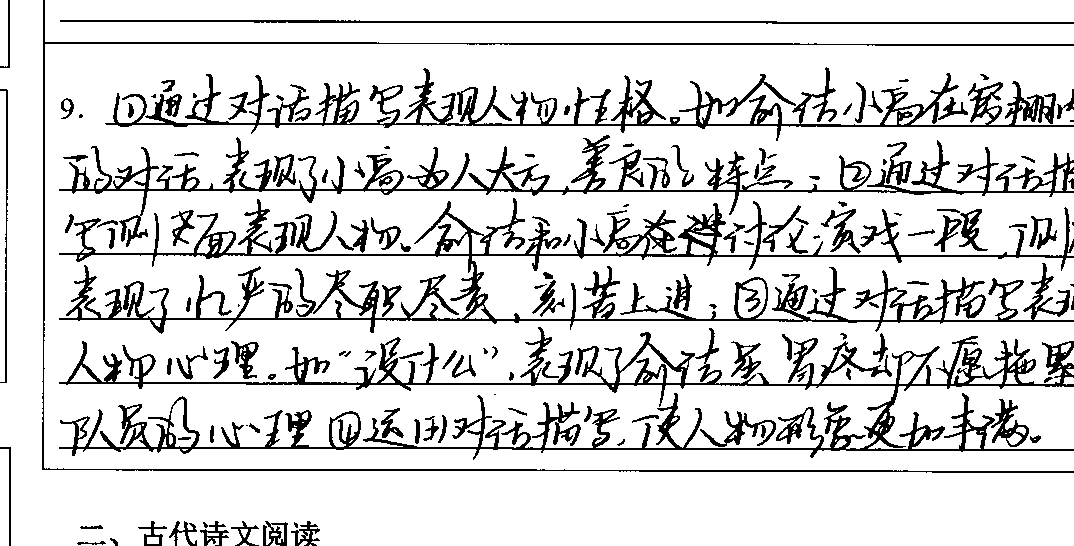 9. ①通过对话描写表现人物性格。如俞洁小高在窝棚
的对话,表现了小高为人大方,善良的特点;②通过对话描
写侧面表现人物。俞洁和小高在讨论演戏一段,侧
表现了忆严的尽职尽责,刻苦上进;③通过对话描写表现
人物心理。如“没什么”,表现了俞洁虽胃疼却不愿拖累
队员的心理④运用对话描写,使人物形象更加丰满。
二、古代诗文阅读